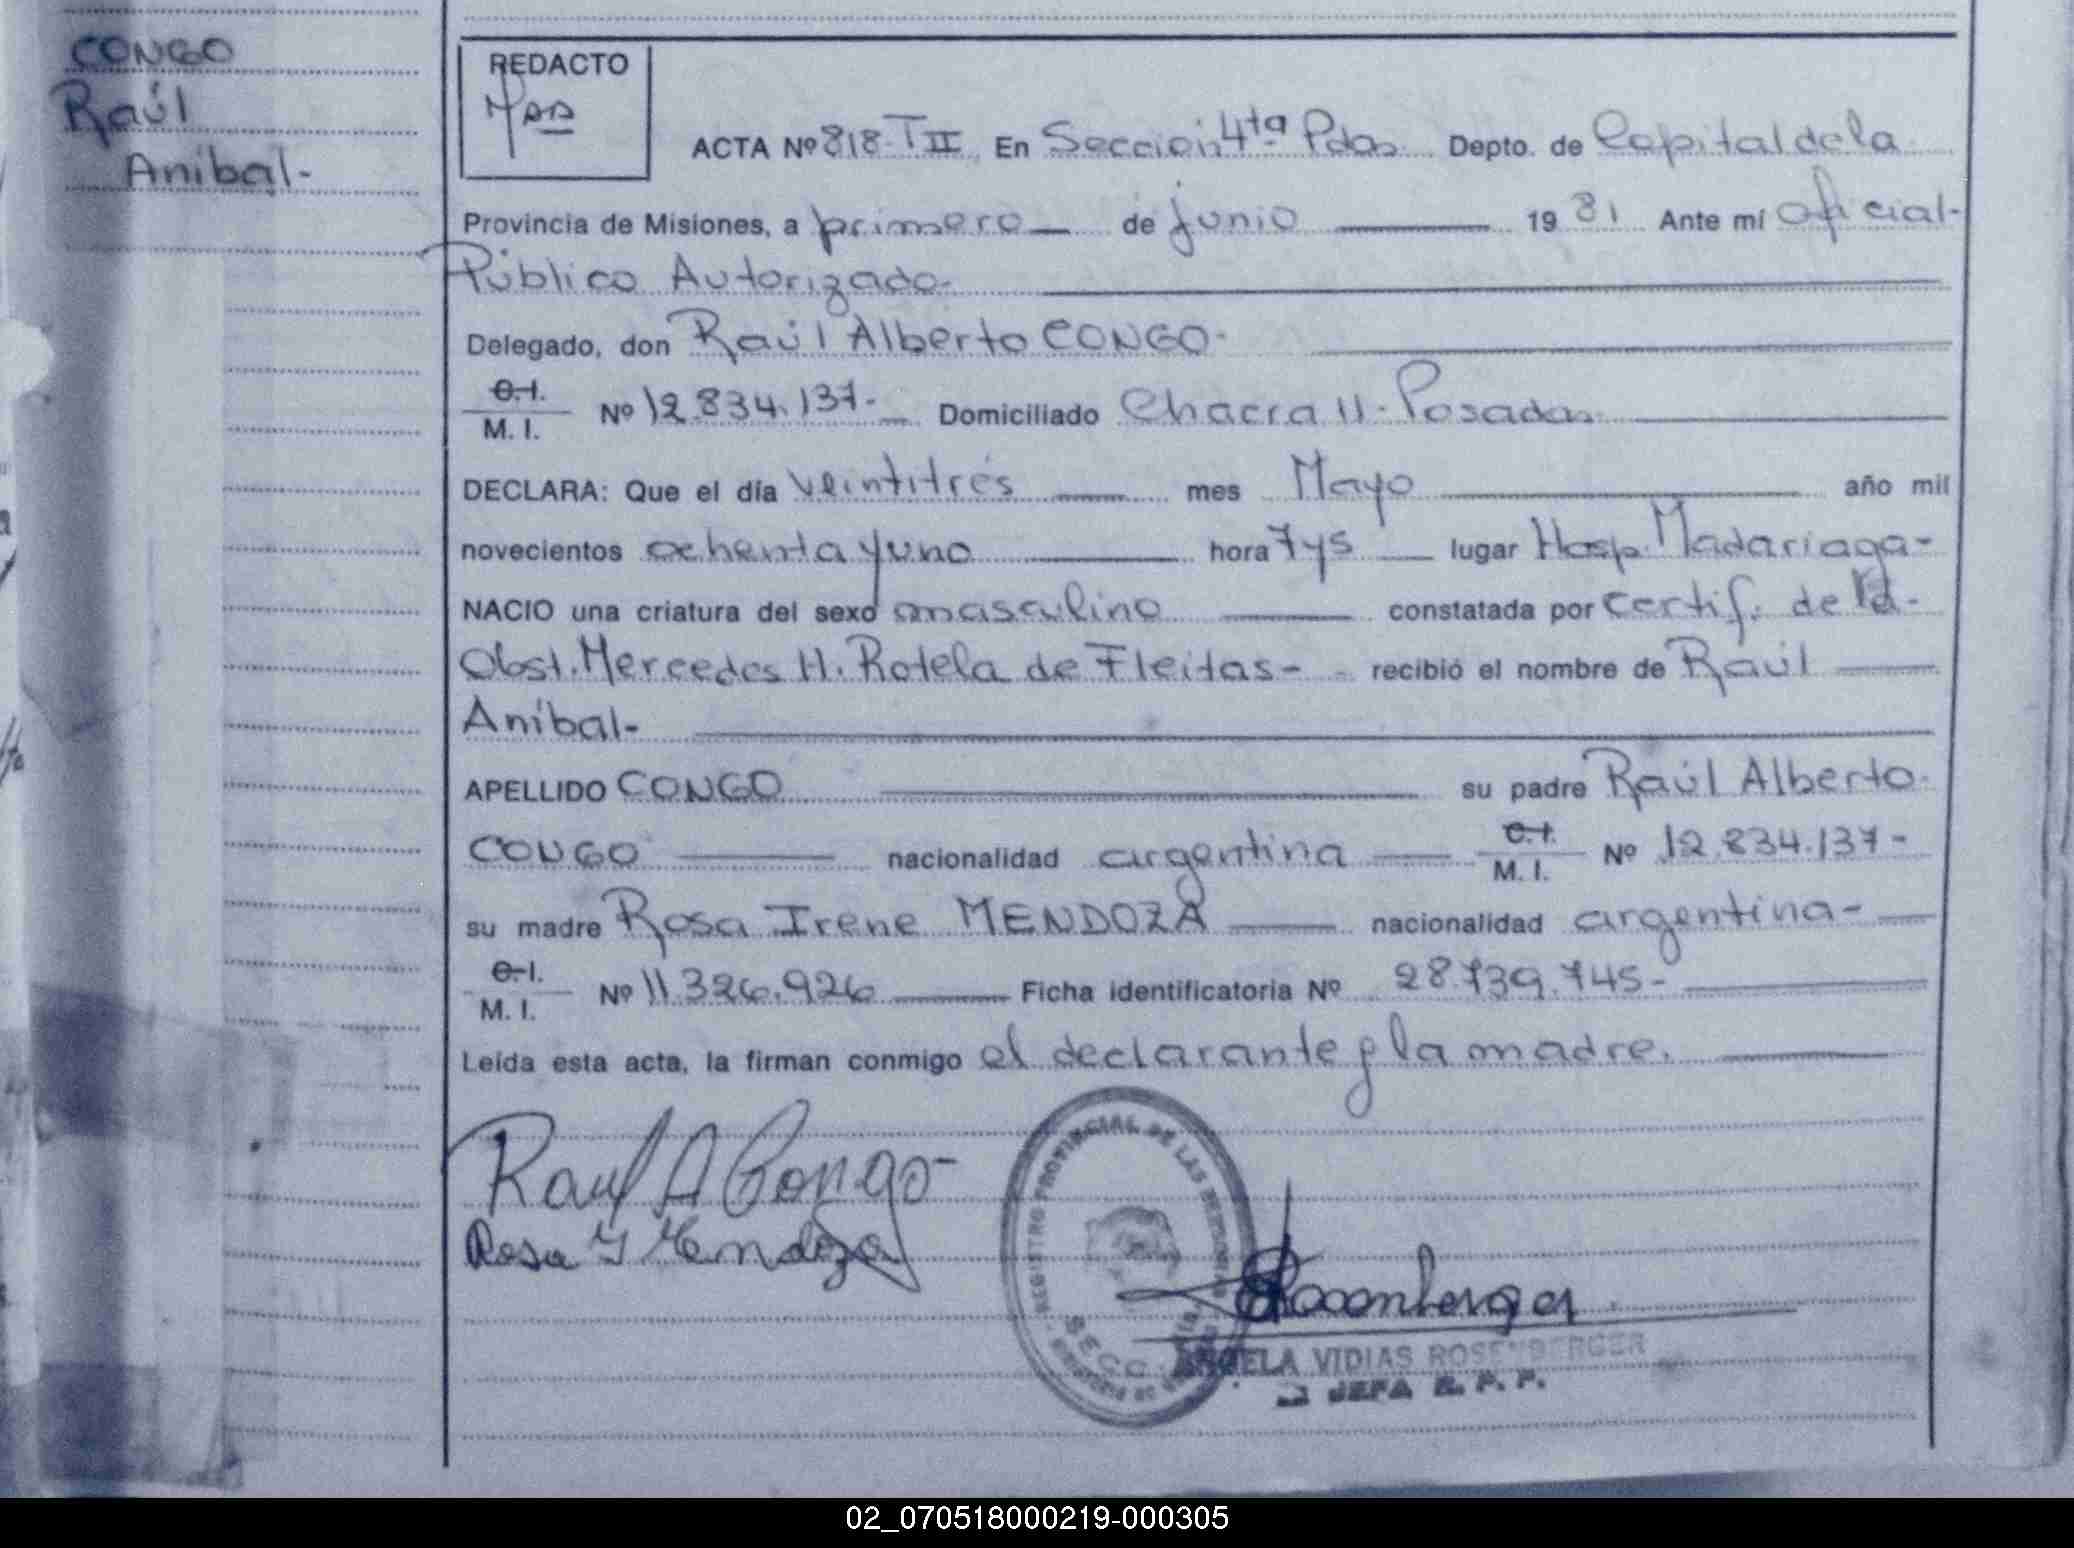 CONGO
Raúl
Aníbal-
REDACTO
ACTA Nº 818-TII En Sección 4ta Pdas Depto. de Capital de la
Provincia de Misiones, a primero de junio 1981 Ante mí oficial-
Público Autorizado-
Delegado, don Raúl Alberto CONGO-
C.I.
M. I. Nº 12.834.137- Domiciliado Chacra 11-Posadas
DECLARA: Que el día veintitrés mes Mayo año mil
novecientos ochenta y uno hora 7 y 5 lugar Hosp. Madariaga-
NACIO una criatura del sexo masculino constatada por certif. de la-
Obst. Mercedes H. Rotela de Fleitas- recibió el nombre de Raúl
Aníbal-
APELLIDO CONGO su padre Raúl Alberto
CONGO nacionalidad argentina C.I.
M. I. Nº 12.834.137-
su madre Rosa Irene MENDOZA nacionalidad argentina-
C.I.
M. I. Nº 11.326.926 Ficha identificatoria Nº 28.739.745-
Leída esta acta, la firman conmigo el declarante y la madre.
Raul A Congo
Rosa I Mendoza
REGISTRO PROVINCIAL DE LAS PERSONAS
SECC.
Rosenberger
ANGELA VIDIAS ROSENBERGER
JEFA R. P. P.
02_070518000219-000305